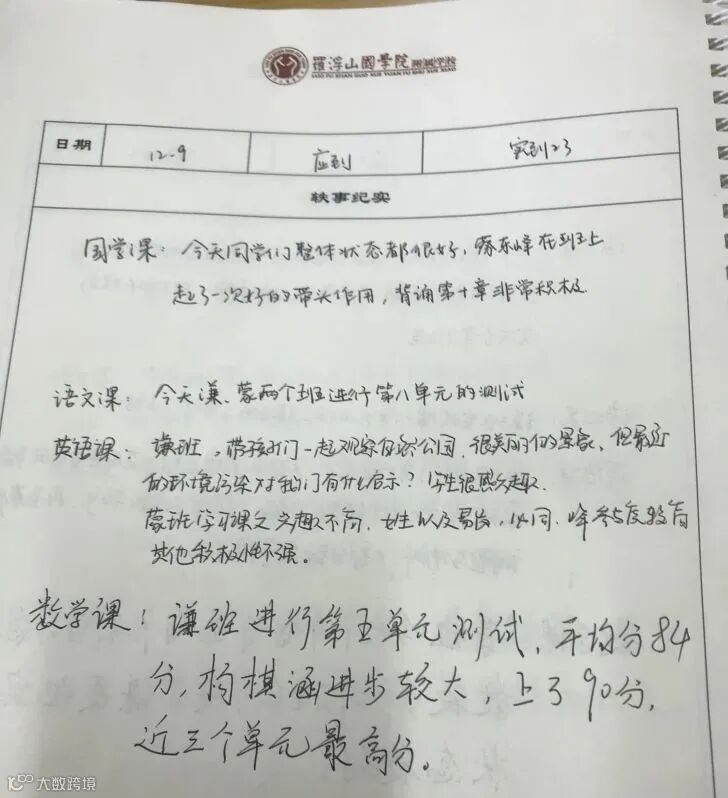 羅浮山國學院附属学校
LUO FU SHAN GUO XUE YUAN FU SHU XUE XIAO
日期 12-9 应到 实到23
轶事纪实
国学课：今天同学们整体状态都很好，蔡东峰在班上
起了一次好的带头作用，背诵第十章非常积极
语文课：今天谦、蒙两个班进行第八单元的测试
英语课：谦班，带孩子们一起观察自然公园，很美丽的景象，但最近
的环境污染对我们有什么启示？学生很感兴趣。
蒙班学习课文兴趣不高，女生以及易
峰参与度较高
其他积极性不强。
数学课：谦班进行第五单元测试，平均分84
分，杨棋涵进步较大，上了90分，
近三个单元最高分。
大数跨境